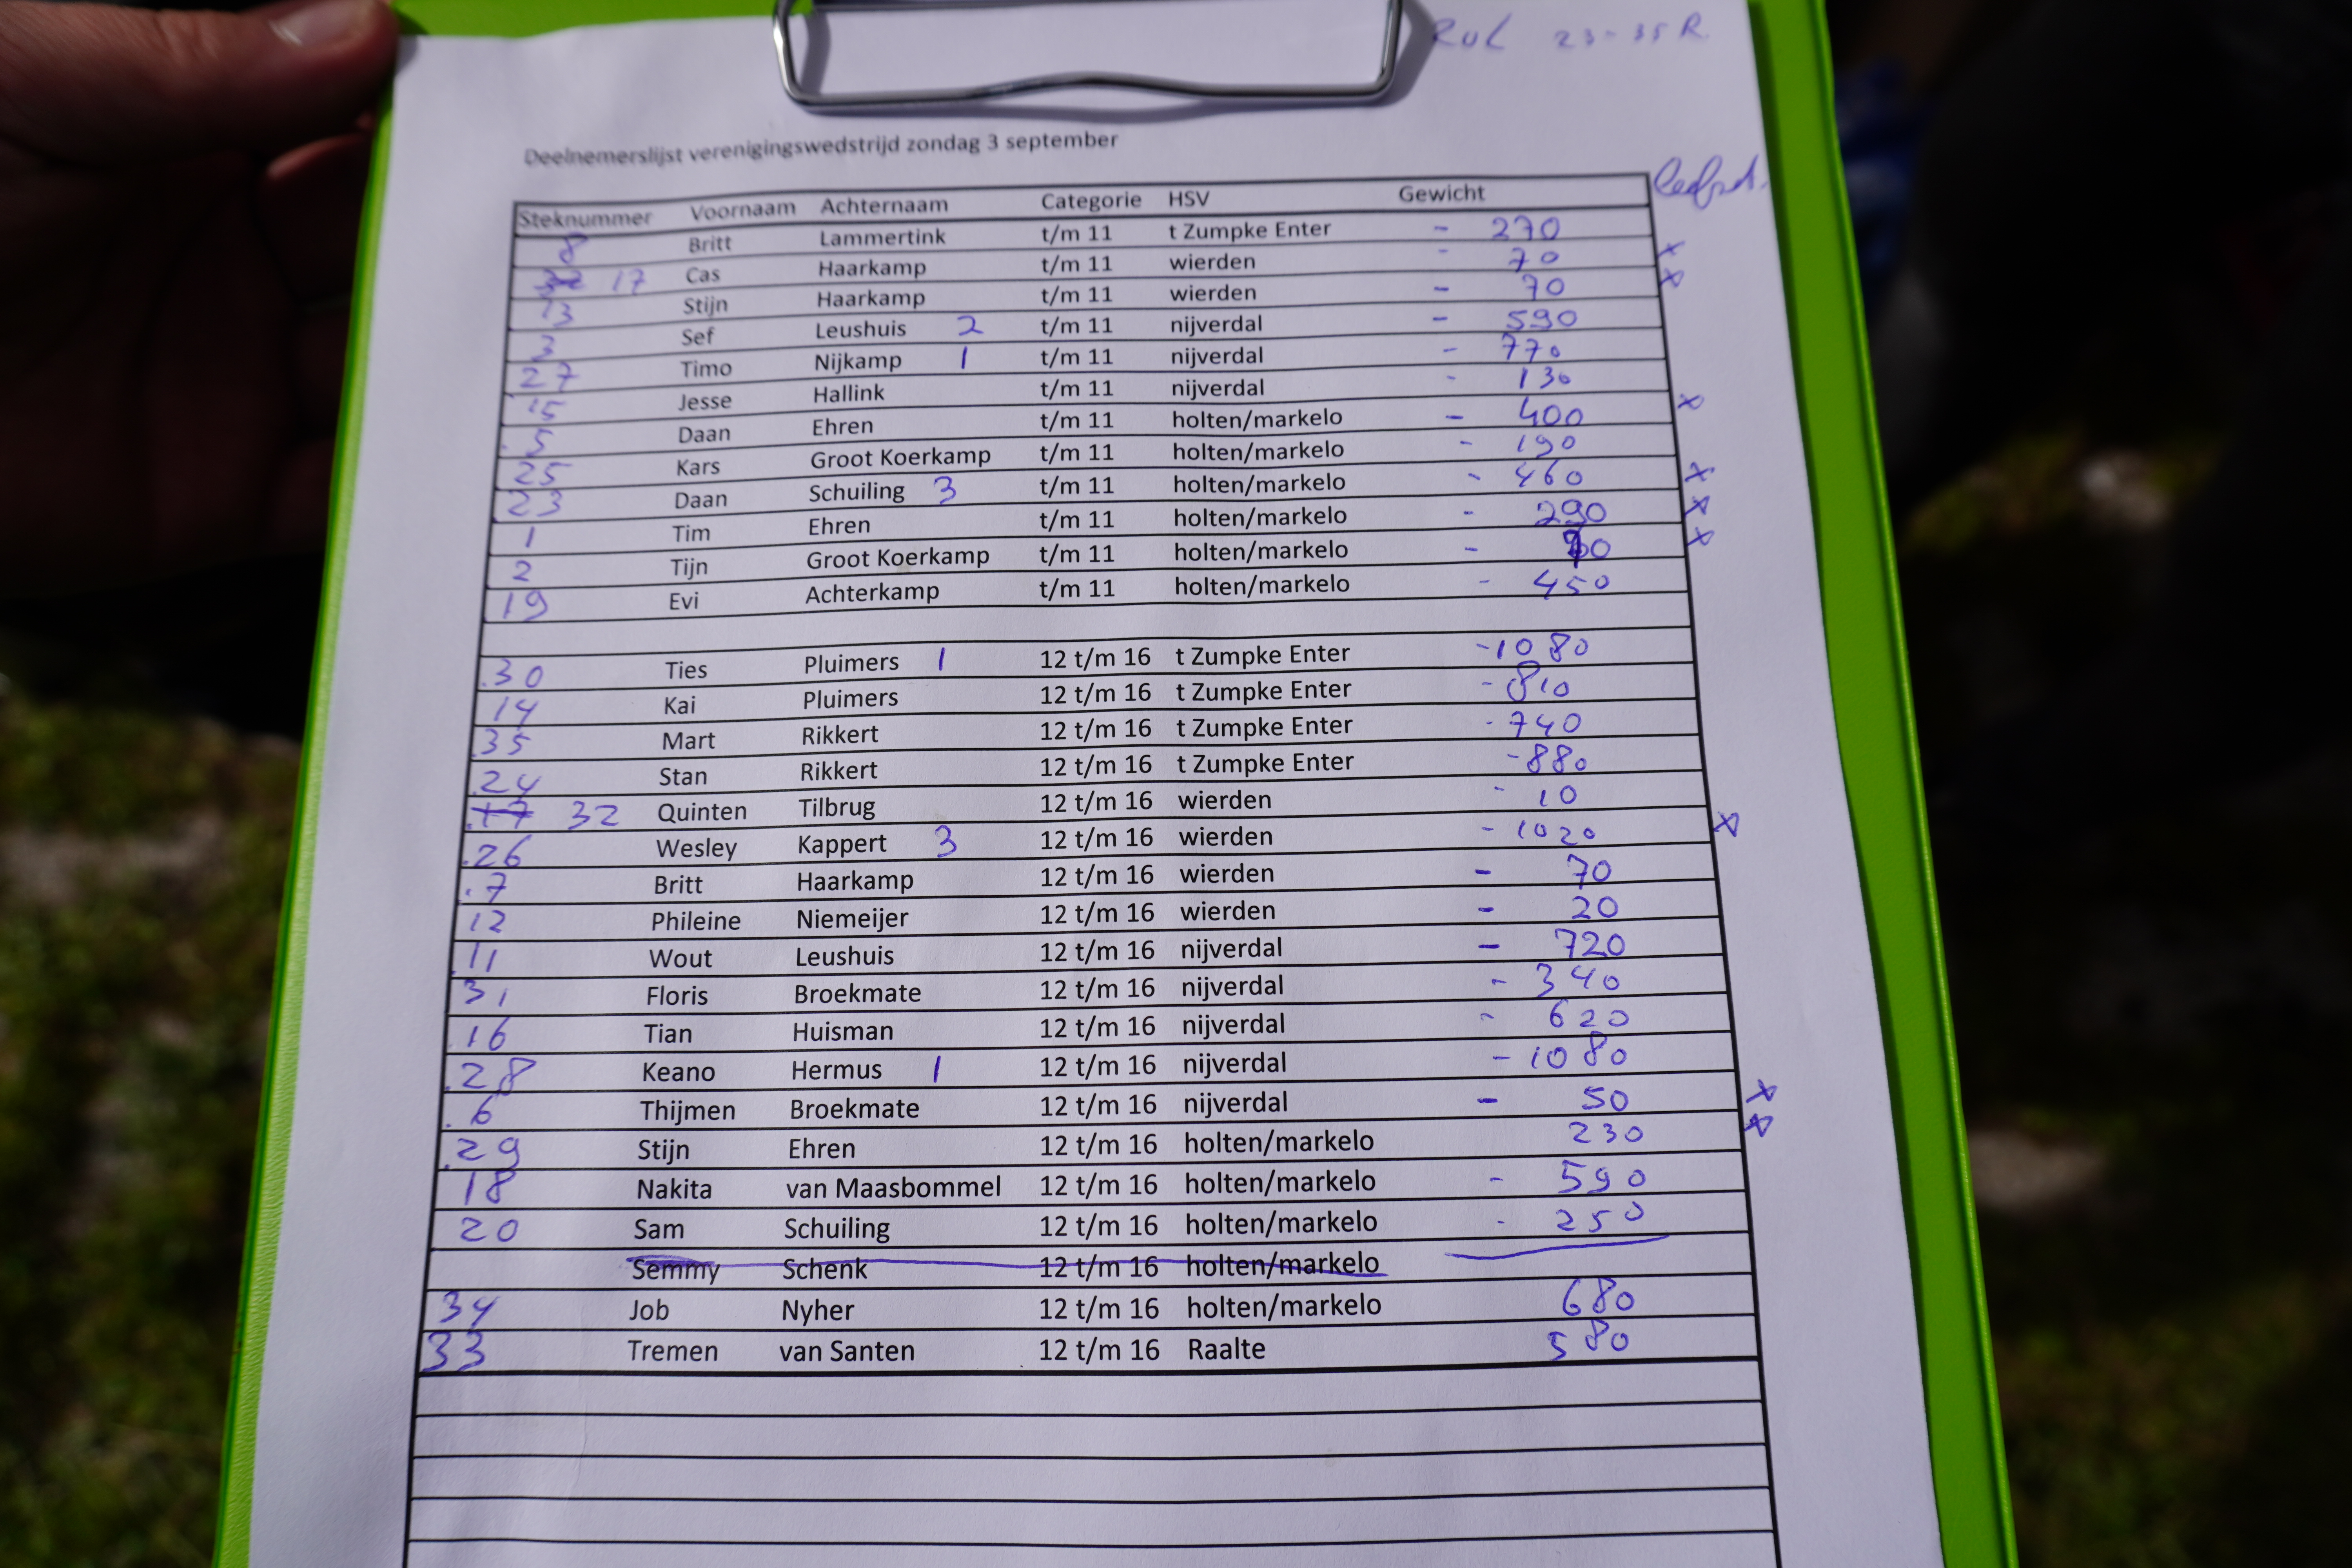 RUL 23-35 R.
Deelnemerslijst verenigingswedstrijd zondag 3 september
Steknummer Voornaam Achternaam Categorie HSV Gewicht
8 Britt Lammertink t/m 11 t Zumpke Enter - 270
17 Cas Haarkamp t/m 11 wierden - 70 x
13 Stijn Haarkamp t/m 11 wierden - 70 x
3 Sef Leushuis 2 t/m 11 nijverdal - 590
27 Timo Nijkamp 1 t/m 11 nijverdal - 770
15 Jesse Hallink t/m 11 nijverdal - 130
5 Daan Ehren t/m 11 holten/markelo - 400 x
25 Kars Groot Koerkamp t/m 11 holten/markelo - 190
23 Daan Schuiling 3 t/m 11 holten/markelo - 460 x
1 Tim Ehren t/m 11 holten/markelo - 290 x
2 Tijn Groot Koerkamp t/m 11 holten/markelo - x
19 Evi Achterkamp t/m 11 holten/markelo - 450
30 Ties Pluimers 1 12 t/m 16 t Zumpke Enter - 1080
14 Kai Pluimers 12 t/m 16 t Zumpke Enter - 810
35 Mart Rikkert 12 t/m 16 t Zumpke Enter - 740
24 Stan Rikkert 12 t/m 16 t Zumpke Enter - 880
17 32 Quinten Tilbrug 12 t/m 16 wierden - 10
26 Wesley Kappert 3 12 t/m 16 wierden - 1020 x
7 Britt Haarkamp 12 t/m 16 wierden - 70
12 Phileine Niemeijer 12 t/m 16 wierden - 20
11 Wout Leushuis 12 t/m 16 nijverdal - 720
31 Floris Broekmate 12 t/m 16 nijverdal - 340
16 Tian Huisman 12 t/m 16 nijverdal - 620
28 Keano Hermus 1 12 t/m 16 nijverdal - 1080
6 Thijmen Broekmate 12 t/m 16 nijverdal - 50 x
29 Stijn Ehren 12 t/m 16 holten/markelo 230 x
18 Nakita van Maasbommel 12 t/m 16 holten/markelo - 590
20 Sam Schuiling 12 t/m 16 holten/markelo - 250
Semmy Schenk 12 t/m 16 holten/markelo
34 Job Nyher 12 t/m 16 holten/markelo 680
33 Tremen van Santen 12 t/m 16 Raalte 580